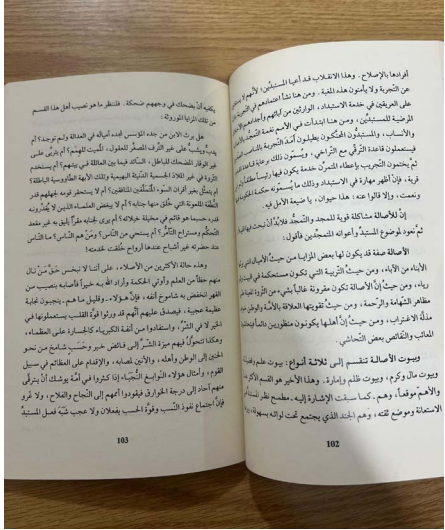 أفرادها بالإصلاح. وهذا الانقلاب قد أعيا المستبدِّين؛ لأنهم لا يستغنون
عن التجربة ولا يأمنون هذه المغبة. ومن هنا نشأ اعتمادهم في التجربة
على العريقين في خدمة الاستبداد، الوارثين من آبائهم وأجدادهم الأخلاق
المرضية للمستبدِّين، ومن هنا ابتدأت في الأمم نغمة التمجُّد بالأصالة
والأنساب، والمستبدُّون المحنَّكون يطيلون أمد التجربة بالمناصب الصغيرة
فيستعملون قاعدة الترقِّي مع التراخي، ويسمّون ذلك برعاية قاعدة القدم،
ثمَّ يختمون التجريب بإعطاء المتمرِّن خدمة يكون فيها رئيساً مطلقاً ولو في
قرية، فإنْ أظهر مهارة في الاستبداد، وذلك ما يسمّونه حكمة الحكومة فبها
ونعمت، وإلا قالوا عنه: هذا حيوان، يا ضيعة الأمل فيه.
إنَّ للأصالة مشاكلة قوية للمجد والتمجُّد فلا بُدَّ أنْ نبحث فيها قليلاً،
ثمَّ نعود لموضوع المستبدِّ وأعوانه المتمجِّدين فأقول:
الأصالة صفة قد يكون لها بعض المزايا من حيثُ الأميال التي يرثها
الأبناء من الآباء، ومن حيثُ التربية التي تكون مستحكمة في البيت ولو
رياء، ومن حيثُ إنَّ الأصالة تكون مقرونة غالباً بشيء من الثروة المعينة على
مظاهر الشهامة والرحمة، ومن حيثُ تقويتها العلاقة بالأمة والوطن خوف
مذلَّة الاغتراب، ومن حيثُ إنَّ أهلها يكونون منظورين دائماً فيتحاشون
المعائب والنقائص بعض التحاشي.
وبيوت الأصالة تنقسم إلى ثلاثة أنواع: بيوت علم وفضيلة،
وبيوت مال وكرم، وبيوت ظلم وإمارة. وهذا الأخير هو القسم الأكثر عدداً
والأهمّ موقعاً، وهم ـ كما سبقت الإشارة إليه ـ مطمح نظر المستبدِّ في
الاستعانة وموضع ثقته؛ وهم الجند الذي يجتمع تحت لوائه بسهولة، وربما
102
يكفيه أنْ يضحك في وجههم ضحكة. فلننظر ما هو نصيب أهل هذا القسم
من تلك المزايا الموروثة:
هل يرث الابن من جدِّه المؤسِّس لمجده أمياله في العدالة ولم توجد؟ أم
يدبُّ ويشبُّ على غير الترف المصغِّر للعقول، المميت للهمم؟ أم يتربَّى على
غير الوقار المضحك للباطل، السَّائد فيما بين العائلة في بيتهم؟ أم يستخدم
الثروة في غير الملاذِّ الجسمية الدنيئة البهيمية وتلك الأبهة الطاووسية الباطلة؟
أم يتمثَّل بغير أقران السوء المتملِّقين المنافقين؟ أم لا يستحقر قومه لجهلهم قدر
النُّطفة الملعونة التي خُلق منها جنابه؟ أم لا يبغض العلماء الذين لا يُقدِّرونه
قدره حسبما هو قائم في مخيلة خيلائه؟ أم يرى لجنابه مقرّاً يليق به غير مقعد
التحكُّم ومستراح التآمر؟ أم يستحي من النَّاس؟ ومَنْ هم النَّاس؟ ما النَّاس
عند حضرته غير أشباح عندها أرواح خُلقت لخدمته!
وهذه حالة الأكثرين من الأصلاء، على أننا لا نبخس حقَّ مَنْ نال
منهم حظّاً من العلم وأوتي الحكمة وأراد الله به خيراً فأصابه بنصيب من
القهر انخفض به شامخ أنفه، فإنَّ هؤلاء ـ وقليل ما هم ـ ينجبون نجابة
عظيمة عجيبة، فيصدق عليهم أنَّهم قد ورثوا قوَّة القلب يستعملونها في
الخير لا في الشَّرِّ، واستفادوا من أنفة الكبرياء كالجسارة على العظماء،
وهكذا تتحوَّل فيهم ميزة الشَّرِّ إلى فائض خير وحَسَب شامخ من نحو
الحنين إلى الوطن وأهله، والأنين لمصابه، والإقدام على العظائم في سبيل
القوم، وأمثال هؤلاء النوابغ النُّجباء إذا كثروا في أمَّة يوشك أنْ يترقَّى
منهم آحاد إلى درجة الخوارق فيقودوا أممهم إلى النَّجاح والفلاح، ولا غرو
فإنَّ اجتماع نفوذ النَّسب وقوَّة الحسب يفعلان ولا عجب شبه فعل المستبدِّ
103